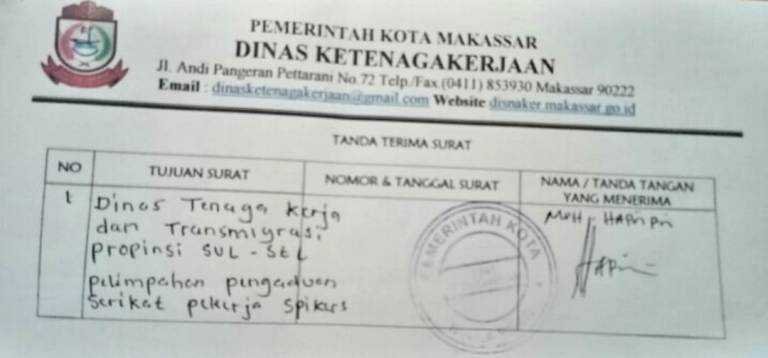 PEMERINTAH KOTA MAKASSAR
DINAS KETENAGAKERJAAN
Jl. Andi Pangeran Pettarani No.72 Telp./Fax (0411) 853930 Makassar 90222
Email : dinasketenagakerjaan@gmail.com Website disnaker.makassar.go.id
TANDA TERIMA SURAT
NO
TUJUAN SURAT
NOMOR & TANGGAL SURAT
NAMA / TANDA TANGAN
YANG MENERIMA
1
Dinas Tenaga Kerja
dan Transmigrasi
propinsi SUL-SEL
pelimpahan pengaduan
Serikat pekerja
PEMERINTAH KOTA
MOH